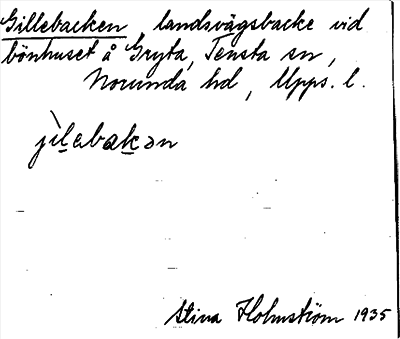 Gillebacken landsvägsbacke vid
bönhuset å Gryta, Tensta sn,
Norunda hd, Upps. l.
jìlebakən
Stina Holmström 1935